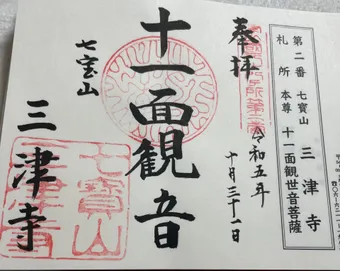 第二番 七寳山 三津寺
札所本尊 十一面觀世音菩薩
奉拝
令和五年
十月三十一日
十一面観音
七宝山
三津寺
七寳山
三津寺